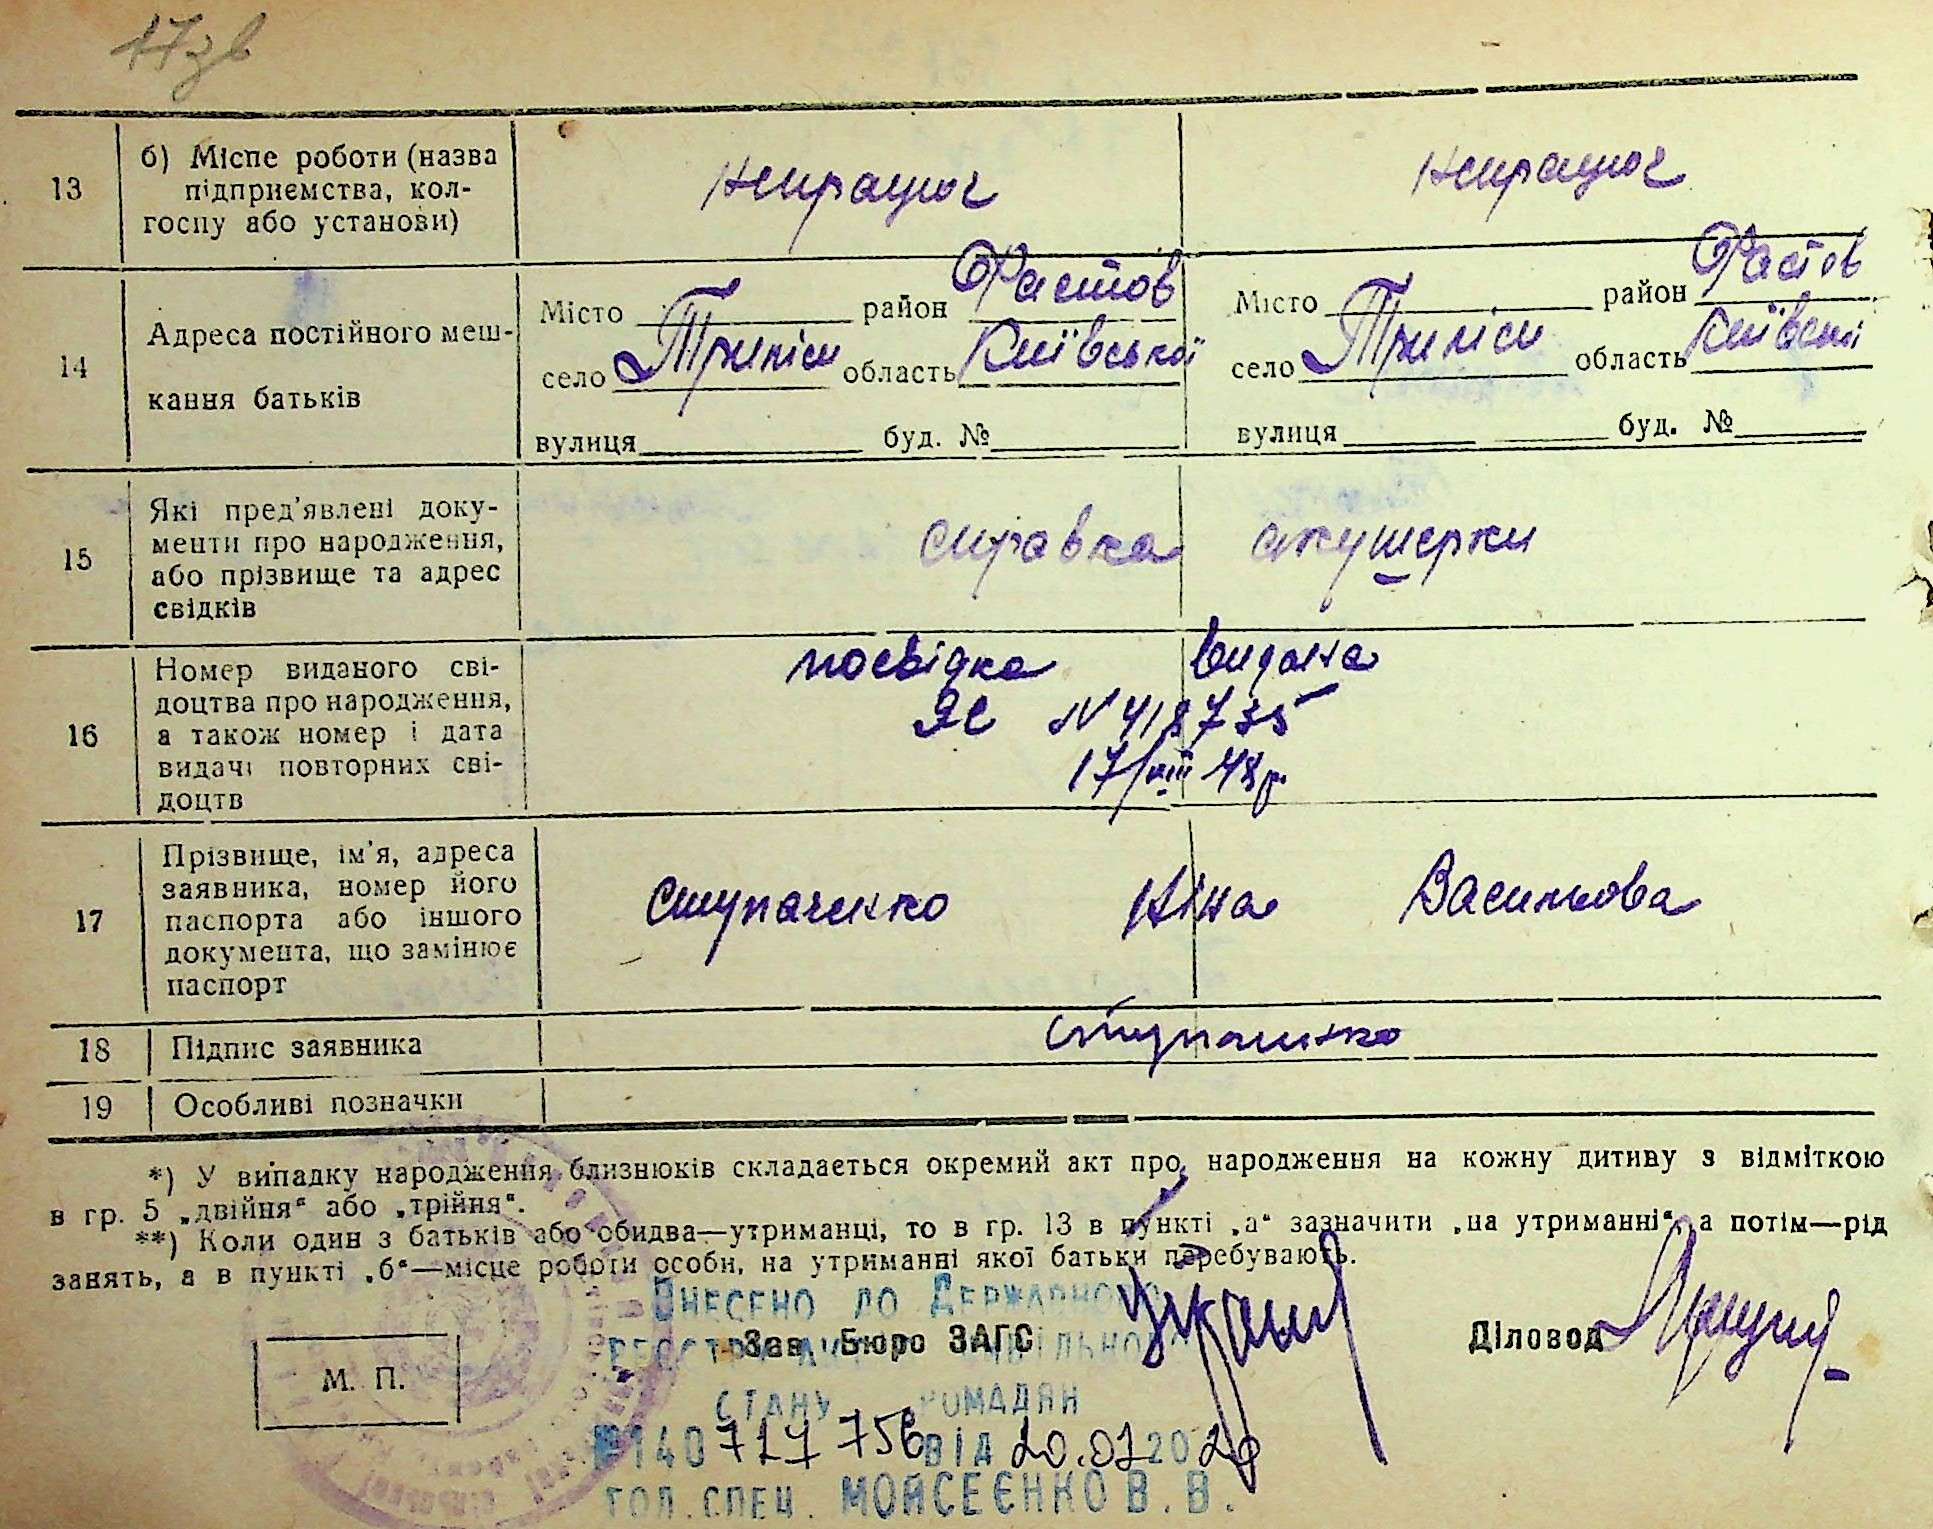 17зв
13 б) Місце роботи (назва підприємства, колгоспу або установи) непрацює непрацює
14 Адреса постійного мешкання батьків
Місто район Фастов Місто район Фастов
село Триліси область Київської село Триліси область Київські
вулиця буд. № вулиця буд. №
15 Які пред'явлені документи про народження, або прізвище та адрес свідків справка акушерки
16 Номер виданого свідоцтва про народження, а також номер і дата видачі повторних свідоцтв
посвідка видана
ЯС № 418735
17/VIII 48р.
17 Прізвище, ім'я, адреса заявника, номер його паспорта або іншого документа, що замінює паспорт Ступаченко Ніна Васильова
18 Підпис заявника Ступаченко
19 Особливі позначки
*) У випадку народження близнюків складається окремий акт про народження на кожну дитину з відміткою
в гр. 5 „двійня“ або „трійня“.
**) Коли один з батьків або обидва—утриманці, то в гр. 13 в пункті „а“ зазначити „на утриманні“, а потім—рід
занять, а в пункті „б“—місце роботи особи, на утриманні якої батьки перебувають.
Внесено до Державного
реєстру актів цивільного
Зав. Бюро ЗАГС Діловод
М. П.
стану громадян
№ 140 717 756 від 20.07 2020
гол. спец. Мойсеєнко В. В.